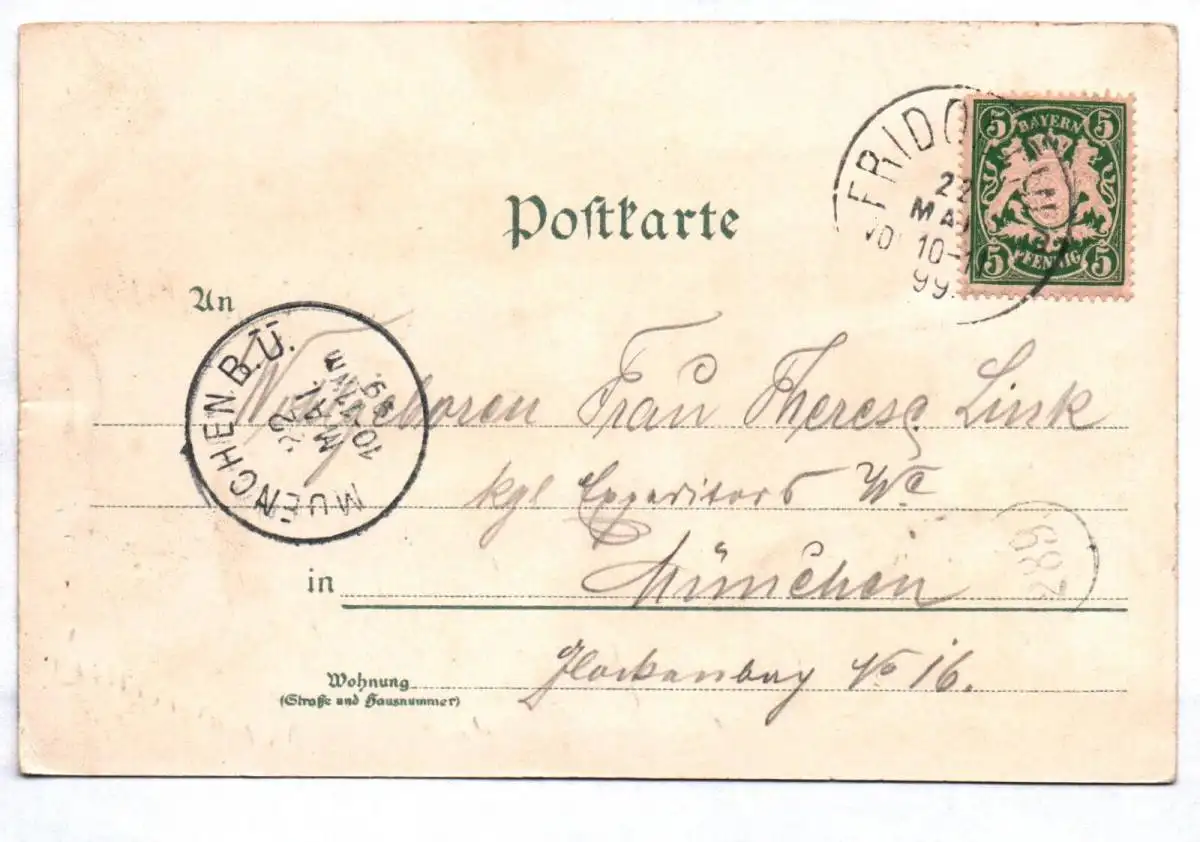 5 BAYERN 5
5 PFENNIG 5
FRIDO
22
MAI
10-1
99.
Postkarte
An
MUENCHEN B.Ü.
22
MAI.
10-11
99
Wohlgeboren Frau Therese Link
kgl Expeditors We
in München
289
Wohnung No 16.
(Straße und Hausnummer)